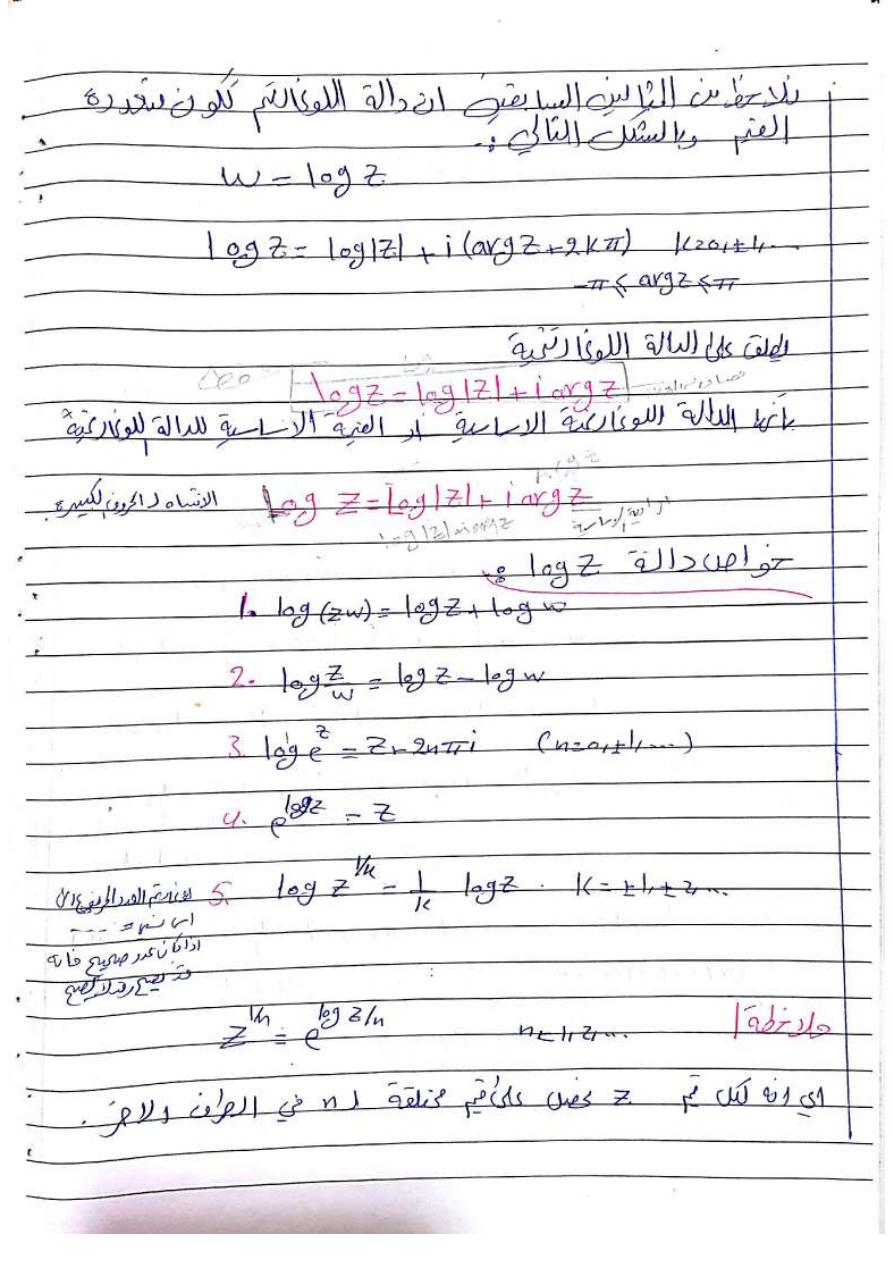 نلاحظ من المثالين السابقين ان دالة اللوغاريتم تكون متعددة
القيم وبالشكل التالي :-
w = log z
log z = log|z| + i(arg z + 2kπ) k=0,±1,...
-π ≤ arg z ≤ π
يطلق على الدالة اللوغارتمية
log z = log|z| + i arg z
بأنها الدالة اللوغارتمية الاساسية او القيمة الاساسية للدالة اللوغارتمية
Log z = Log|z| + i arg z الانتباه لـ الحروف الكبيرة
log|z| + i arg z
خواص دالة log z :
1. log(zw) = log z + log w
2. log z/w = log z - log w
3. log e^z = z + 2nπi (n=0,±1,...)
4. e^log z = z
5. log z^1/k = 1/k log z . k = ±1,±2,...
اذا كان عدد صحيح فانه
قد يصح وقد لا يصح
ملاحظة / z^1/n = e^log z/n n=1,2,...
اي انه لكل قيم z نحصل على قيم مختلفة لـ n في الطرف